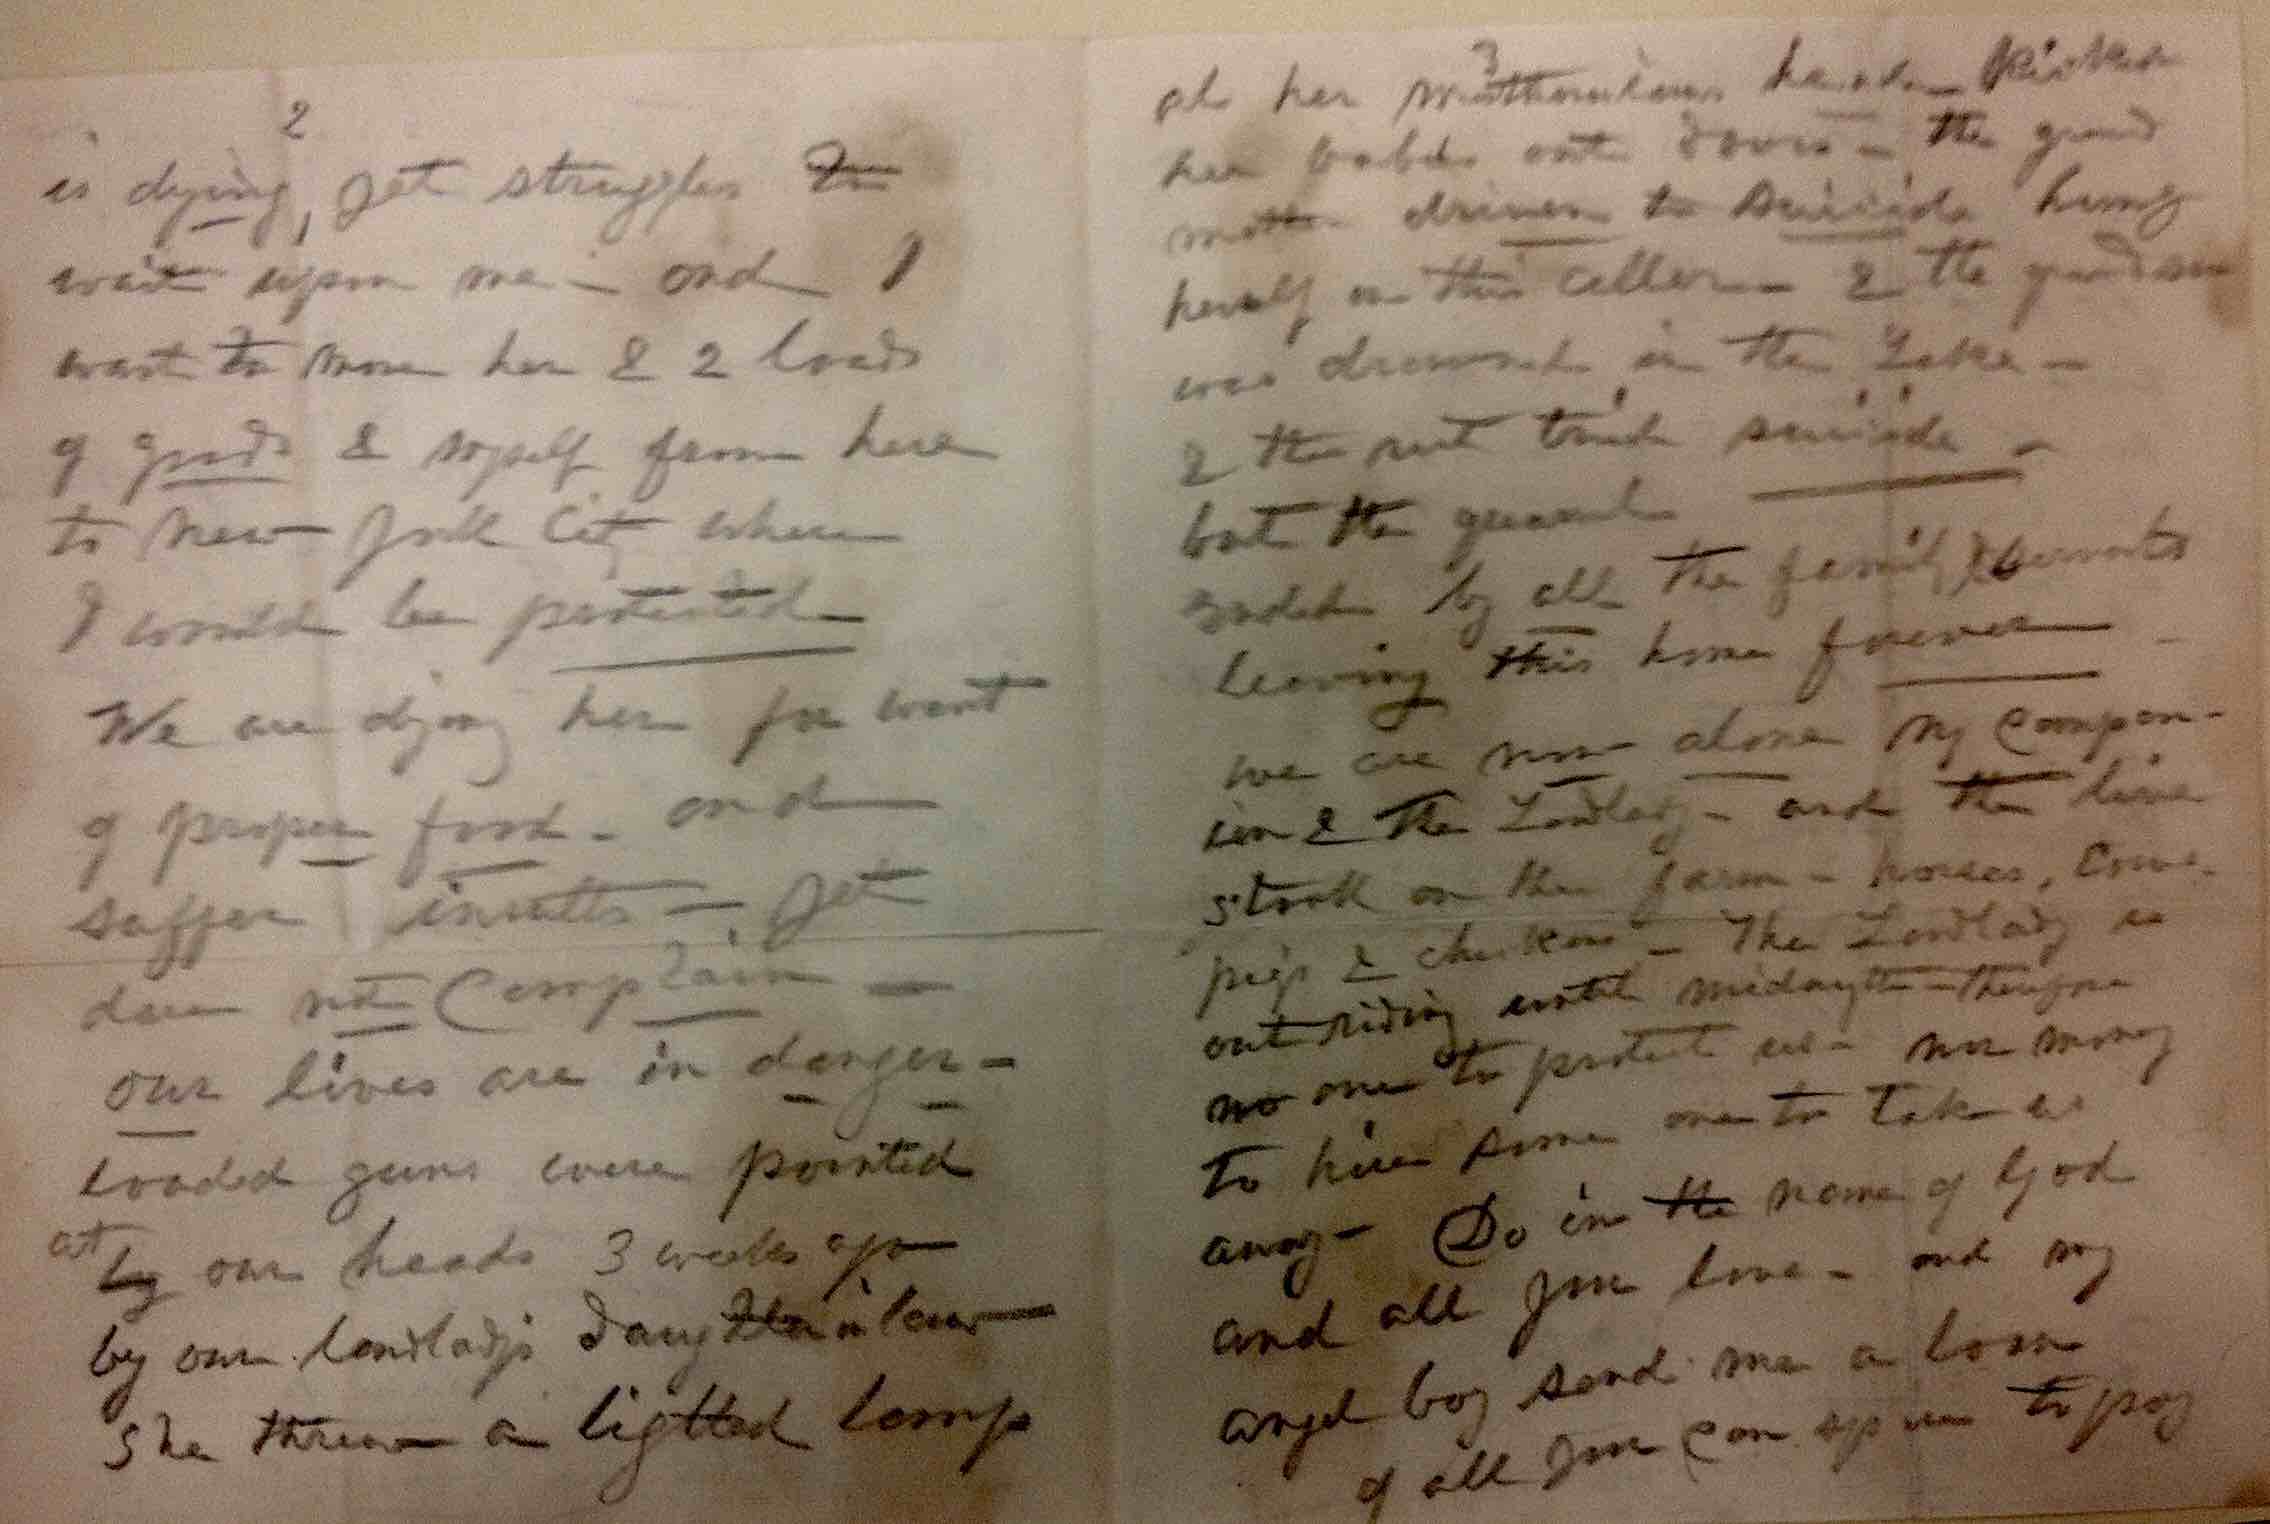 2
is dying, yet struggles to
wait upon me - and I
want to move her & 2 loads
of goods & myself from here
to New York City where
I would be protected
We are dying here for want
of proper food - and
suffer insults - yet
dare not Complain -
our lives are in danger -
loaded guns were pointed
at
by our heads 3 weeks ago
by our landlady's daughter in law
She threw a lighted lamp
3
at her mother in laws head - Kicked
her babes out doors - the grand
mother driven to suicide hung
herself in this cellar - & the grandson
was drowned in the Lake -
& the rest tried suicide -
but the quarrel
Ended by all the family & servants
leaving this home forever -
we are now alone my compan-
ion & The Landlady - and the live
stock on the farm - horses, cows -
pigs & chickens - The Landlady is
out riding until midnight - therefore
no one to protect us - nor money
to hire some one to take us
away - Do in the name of God
and all you love - and my
angel boy send me a loan
of all you can spare to pay